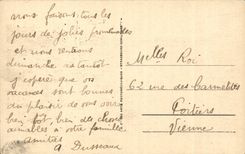 nous faisons tous les
jours de jolies promenades
et nous rentrons
dimanche
j'espère que vos
vacances sont bonnes
du plaisir de vous
bientôt, bien des choses
aimables à votre famille
amitiés
A Dusseaux
Melles Roi
62 rue des Carmelites
Poitiers
Vienne